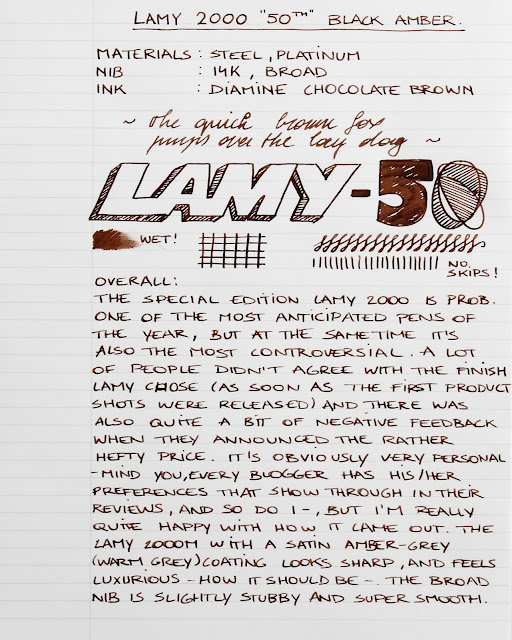 LAMY 2000 "50TH" BLACK AMBER.
MATERIALS : STEEL, PLATINUM
NIB : 14K, BROAD
INK : DIAMINE CHOCOLATE BROWN
~ the quick brown fox
jumps over the lazy dog ~
LAMY-50
WET!
NO SKIPS!
OVERALL:
THE SPECIAL EDITION LAMY 2000 IS PROB.
ONE OF THE MOST ANTICIPATED PENS OF
THE YEAR, BUT AT THE SAME TIME IT'S
ALSO THE MOST CONTROVERSIAL. A LOT
OF PEOPLE DIDN'T AGREE WITH THE FINISH
LAMY CHOSE (AS SOON AS THE FIRST PRODUCT
SHOTS WERE RELEASED) AND THERE WAS
ALSO QUITE A BIT OF NEGATIVE FEEDBACK
WHEN THEY ANNOUNCED THE RATHER
HEFTY PRICE. IT'S OBVIOUSLY VERY PERSONAL
-MIND YOU, EVERY BLOGGER HAS HIS/HER
PREFERENCES THAT SHOW THROUGH IN THEIR
REVIEWS, AND SO DO I-, BUT I'M REALLY
QUITE HAPPY WITH HOW IT CAME OUT. THE
LAMY 2000M WITH A SATIN AMBER-GREY
(WARM GREY) COATING LOOKS SHARP, AND FEELS
LUXURIOUS - HOW IT SHOULD BE -. THE BROAD
NIB IS SLIGHTLY STUBBY AND SUPER SMOOTH.